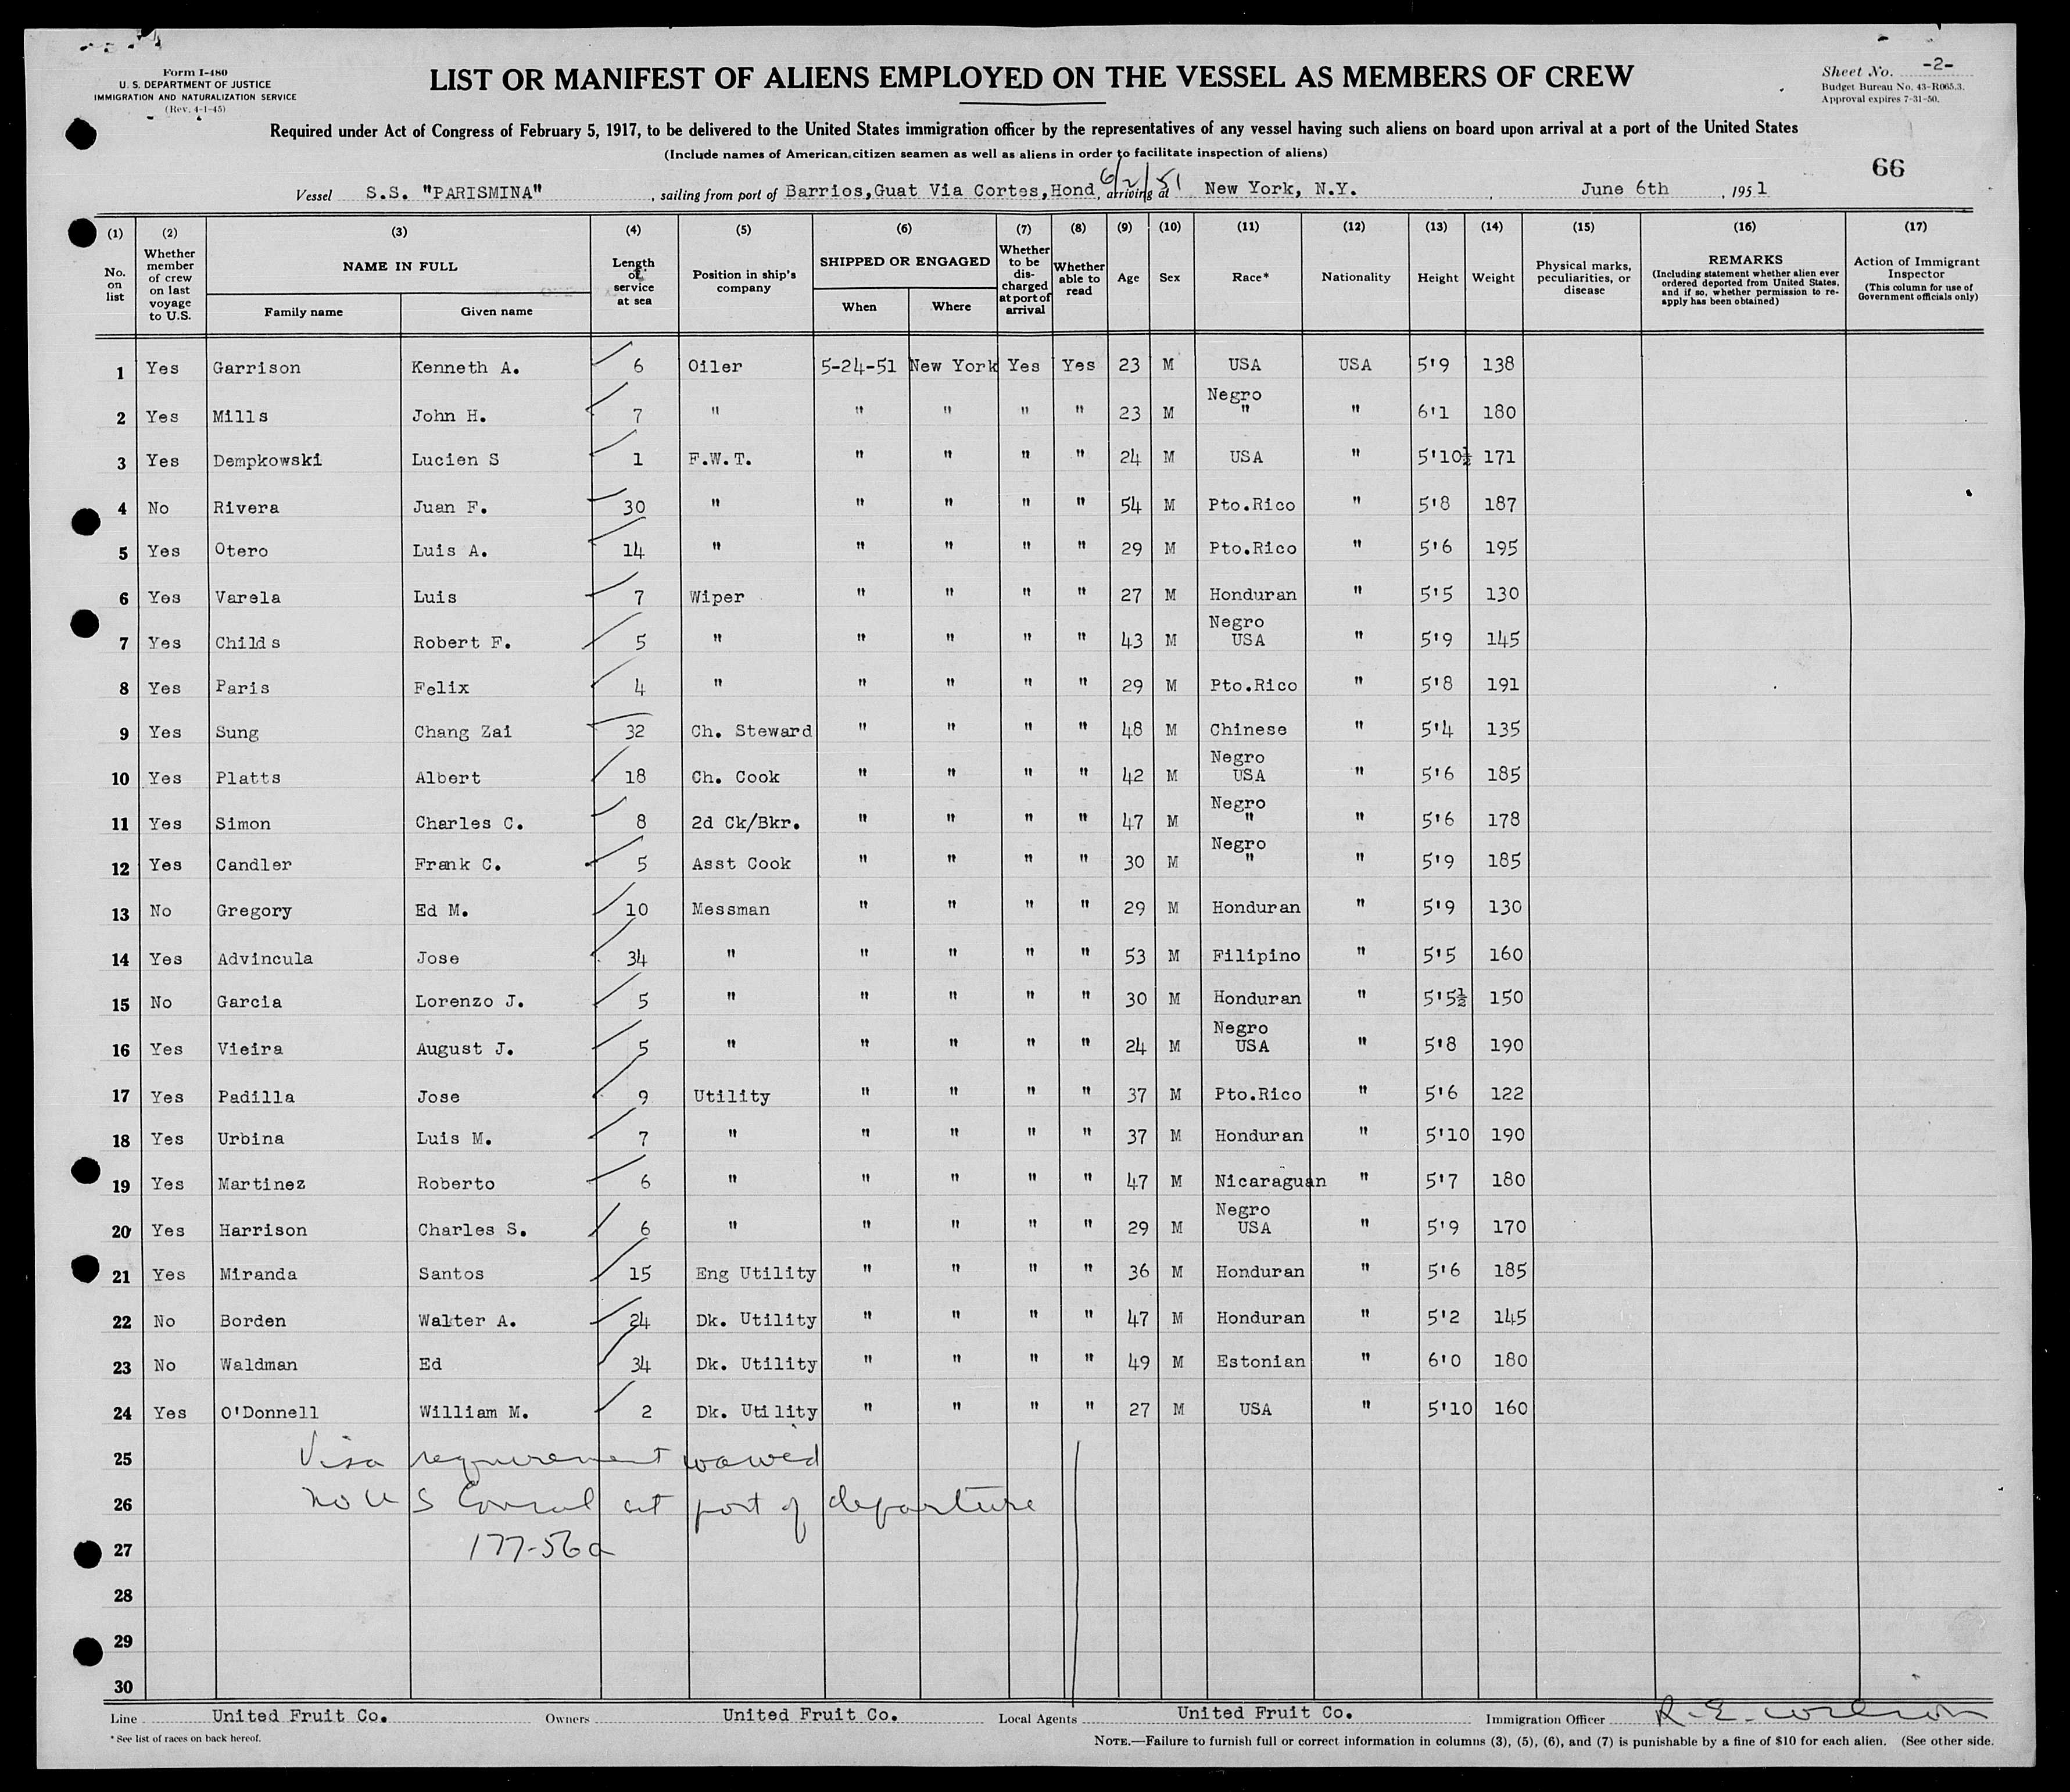 Form I-480
U. S. DEPARTMENT OF JUSTICE
IMMIGRATION AND NATURALIZATION SERVICE
(Rev. 4-1-45)
LIST OR MANIFEST OF ALIENS EMPLOYED ON THE VESSEL AS MEMBERS OF CREW
Sheet No. -2-
Budget Bureau No. 43-R065.3.
Approval expires 7-31-50.
Required under Act of Congress of February 5, 1917, to be delivered to the United States immigration officer by the representatives of any vessel having such aliens on board upon arrival at a port of the United States
(Include names of American citizen seamen as well as aliens in order to facilitate inspection of aliens)
66
Vessel S.S. "PARISMINA", sailing from port of Barrios,Guat Via Cortes,Hond 6/2/51, arriving at New York, N.Y. June 6th, 1951
(1) (2) (3) (4) (5) (6) (7) (8) (9) (10) (11) (12) (13) (14) (15) (16) (17)
No. on list
Whether member of crew on last voyage to U.S.
NAME IN FULL
Family name
Given name
Length of service at sea
Position in ship's company
SHIPPED OR ENGAGED
When
Where
Whether to be discharged at port of arrival
Whether able to read
Age
Sex
Race*
Nationality
Height
Weight
Physical marks, peculiarities, or disease
REMARKS
(Including statement whether alien ever ordered deported from United States, and if so, whether permission to reapply has been obtained)
Action of Immigrant Inspector
(This column for use of Government officials only)
1 Yes Garrison Kenneth A. 6 Oiler 5-24-51 New York Yes Yes 23 M USA USA 5'9 138
2 Yes Mills John H. 7 " " " " " 23 M Negro " " 6'1 180
3 Yes Dempkowski Lucien S 1 F.W.T. " " " " 24 M USA " 5'10½ 171
4 No Rivera Juan F. 30 " " " " " 54 M Pto.Rico " 5'8 187
5 Yes Otero Luis A. 14 " " " " " 29 M Pto.Rico " 5'6 195
6 Yes Varela Luis 7 Wiper " " " " 27 M Honduran " 5'5 130
7 Yes Childs Robert F. 5 " " " " " 43 M Negro USA " 5'9 145
8 Yes Paris Felix 4 " " " " " 29 M Pto.Rico " 5'8 191
9 Yes Sung Chang Zai 32 Ch. Steward " " " " 48 M Chinese " 5'4 135
10 Yes Platts Albert 18 Ch. Cook " " " " 42 M Negro USA " 5'6 185
11 Yes Simon Charles C. 8 2d Ck/Bkr. " " " " 47 M Negro " " 5'6 178
12 Yes Candler Frank C. 5 Asst Cook " " " " 30 M Negro " " 5'9 185
13 No Gregory Ed M. 10 Messman " " " " 29 M Honduran " 5'9 130
14 Yes Advincula Jose 34 " " " " " 53 M Filipino " 5'5 160
15 No Garcia Lorenzo J. 5 " " " " " 30 M Honduran " 5'5½ 150
16 Yes Vieira August J. 5 " " " " " 24 M Negro USA " 5'8 190
17 Yes Padilla Jose 9 Utility " " " " 37 M Pto.Rico " 5'6 122
18 Yes Urbina Luis M. 7 " " " " " 37 M Honduran " 5'10 190
19 Yes Martinez Roberto 6 " " " " " 47 M Nicaraguan " 5'7 180
20 Yes Harrison Charles S. 6 " " " " " 29 M Negro USA " 5'9 170
21 Yes Miranda Santos 15 Eng Utility " " " " 36 M Honduran " 5'6 185
22 No Borden Walter A. 24 Dk. Utility " " " " 47 M Honduran " 5'2 145
23 No Waldman Ed 34 Dk. Utility " " " " 49 M Estonian " 6'0 180
24 Yes O'Donnell William M. 2 Dk. Utility " " " " 27 M USA " 5'10 160
25 Visa requirement waived
26 no U S Consul at port of departure
27 177-56a
28
29
30
Line United Fruit Co. Owners United Fruit Co. Local Agents United Fruit Co. Immigration Officer R. E. Wilson
* See list of races on back hereof.
NOTE.—Failure to furnish full or correct information in columns (3), (5), (6), and (7) is punishable by a fine of $10 for each alien. (See other side.